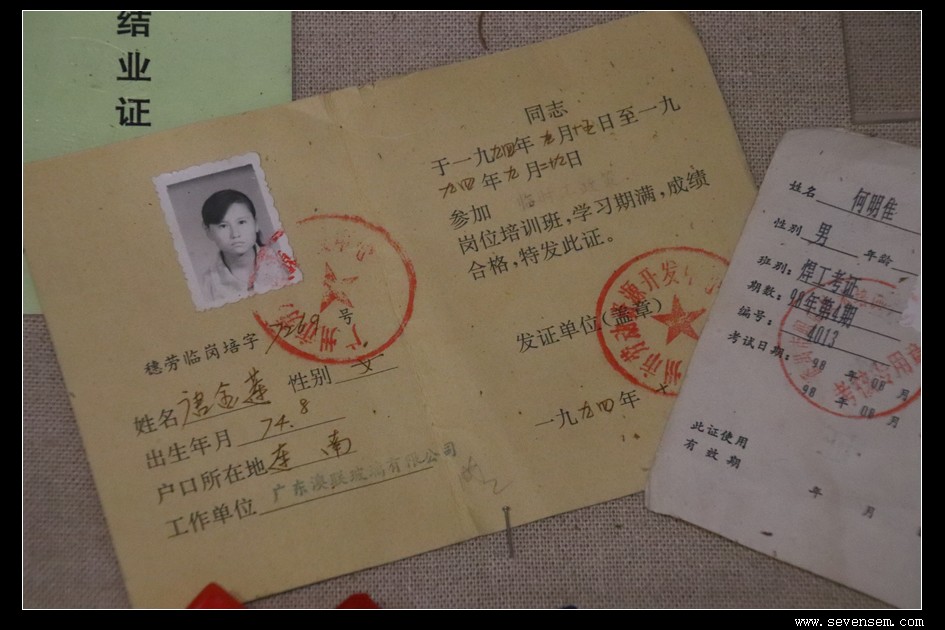 结
业
证
穗劳临岗培字7269号
姓名 金莲 性别 女
出生年月 74.8
户口所在地 连南
工作单位 广东澳联玻璃有限公司
同志
于一九九四年九月十五日至一九
九四年九月二十九日
参加
岗位培训班,学习期满,成绩
合格,特发此证。
发证单位(盖章)
一九九四年
姓名 何明佳
性别 男 年龄
班别: 焊工考证
期数: 98年第4期
编号: 4013
考试日期: 98年08月
98年08月
此证使用
有效期
年
月
www.sevensem.com